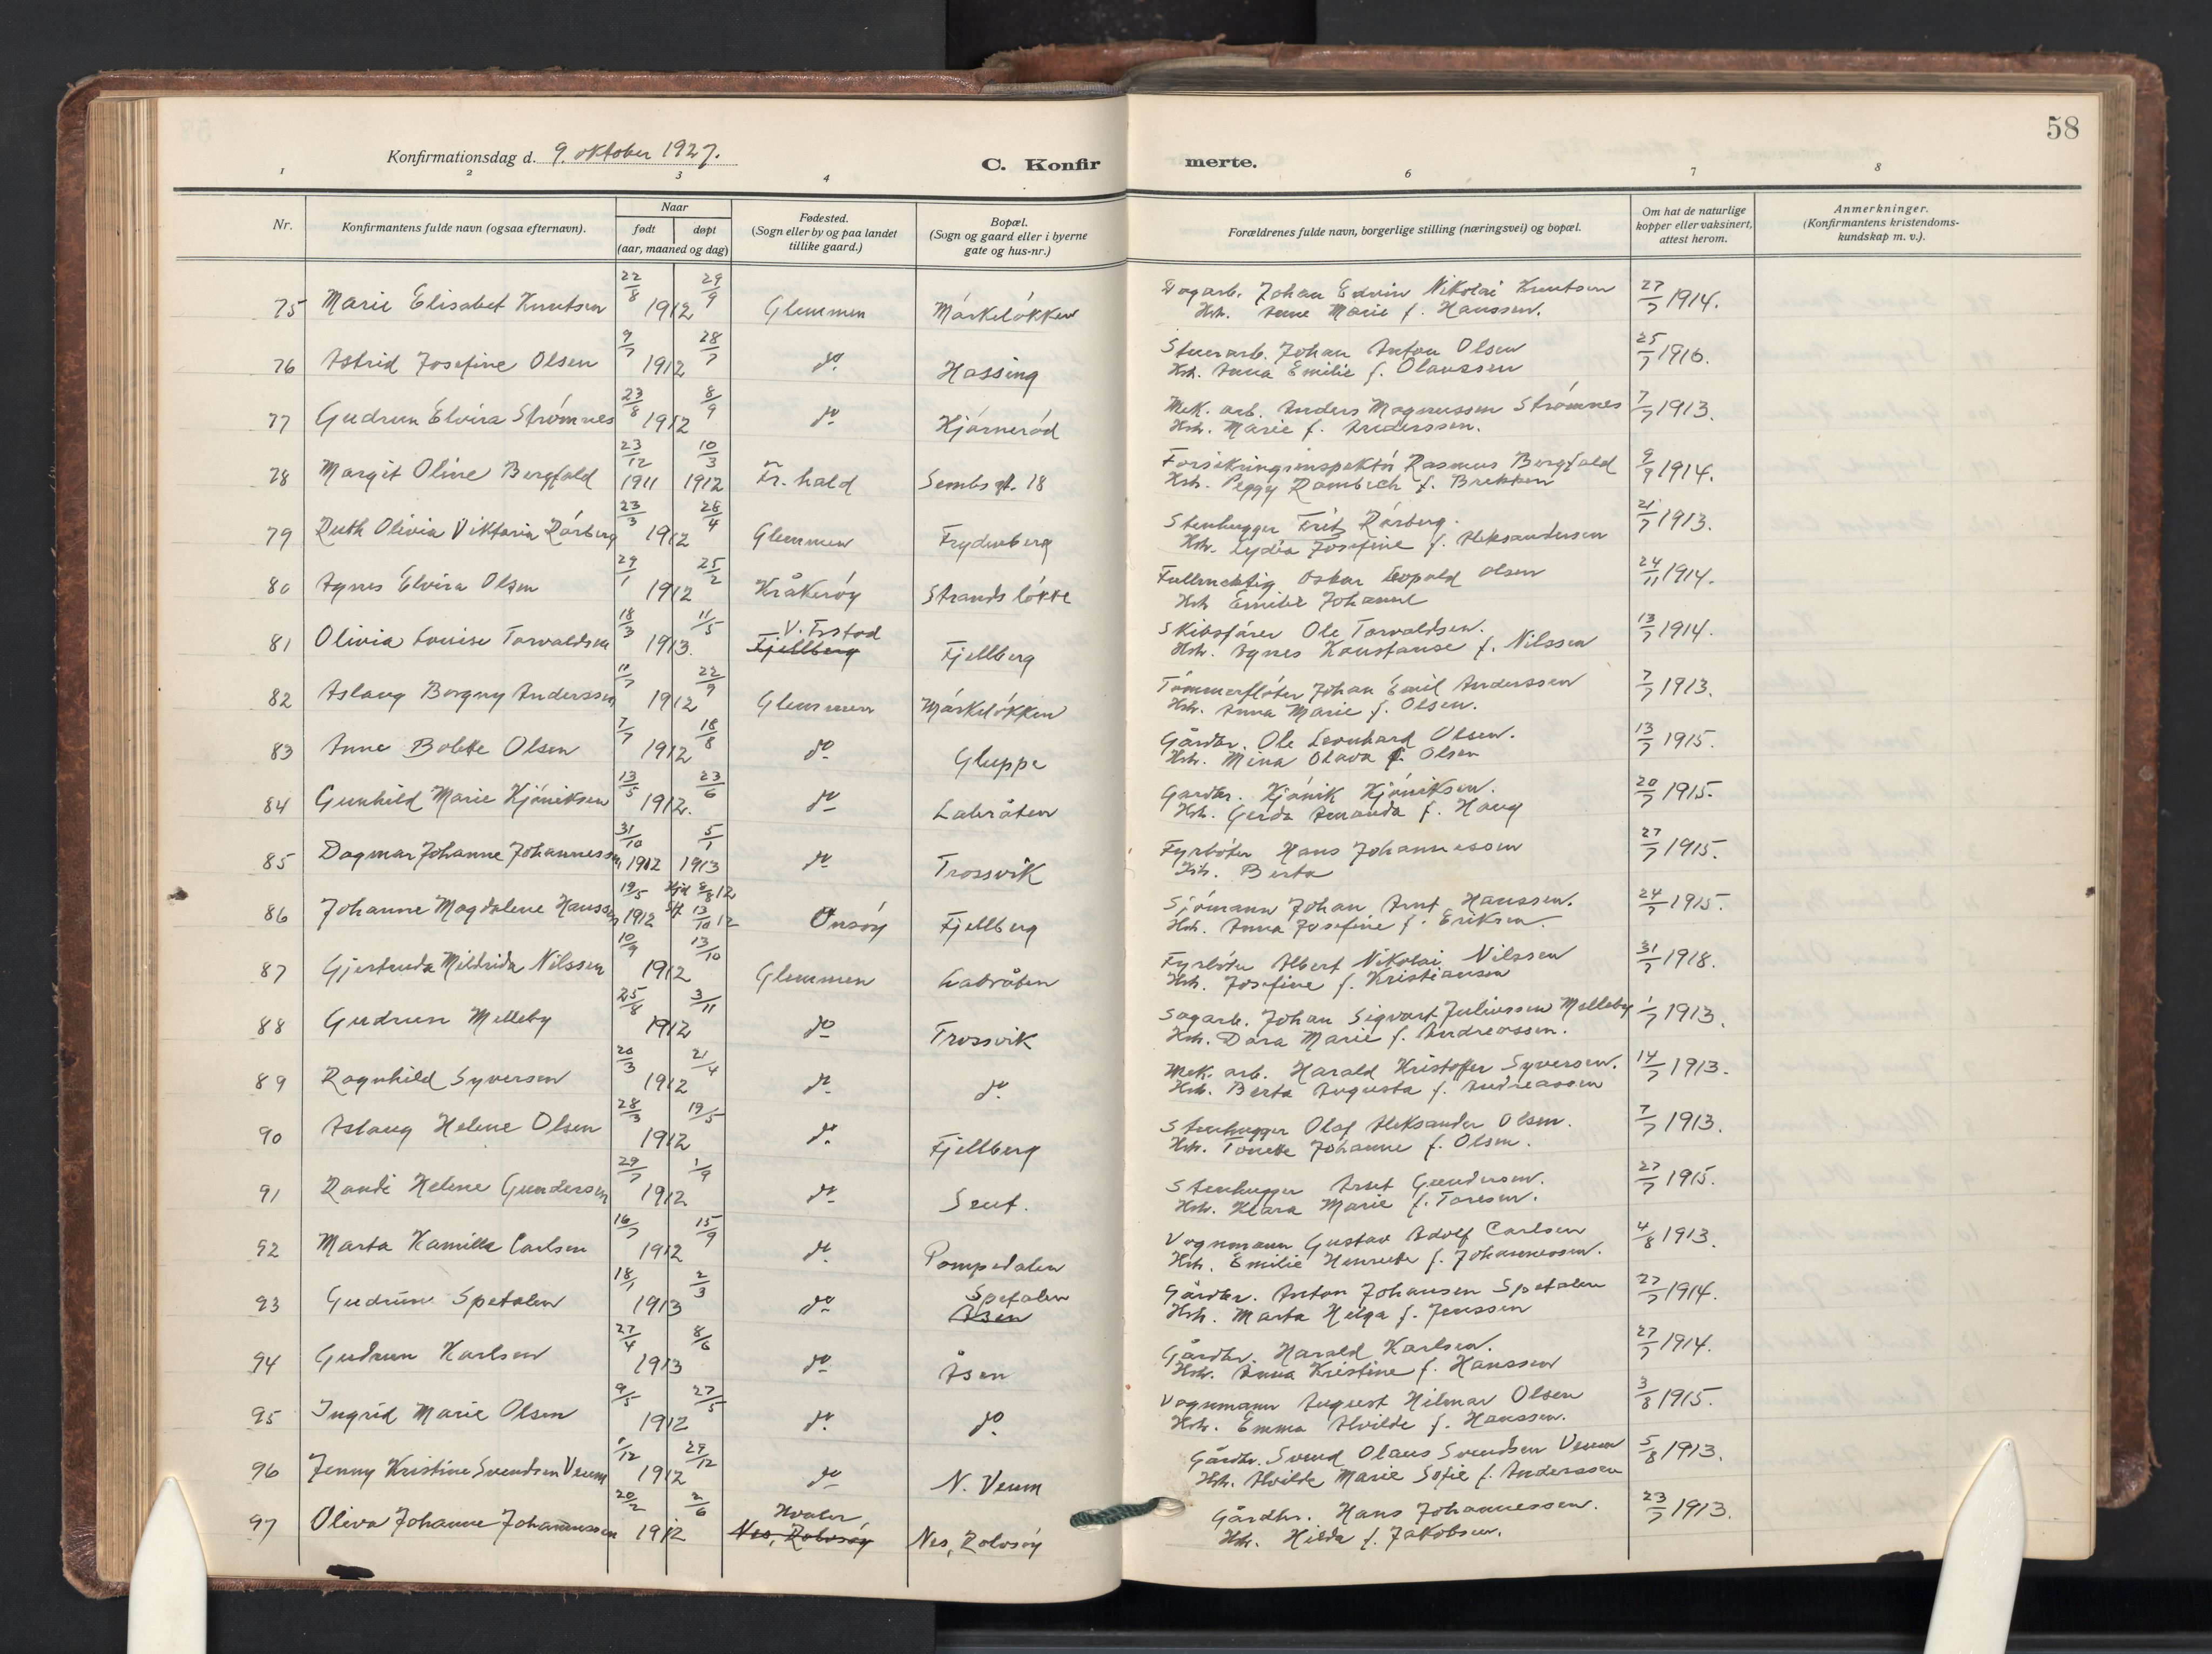 58
Konfirmationsdag d. 9. oktober 1927.
C. Konfirmerte.
1 2 3 4 6 7 8
Nr. Konfirmantens fulde navn (ogsaa efternavn). Naar født døpt (aar, maaned og dag) Fødested. (Sogn eller by og paa landet tillike gaard.) Bopæl. (Sogn og gaard eller i byerne gate og hus-nr.) Forældrenes fulde navn, borgerlige stilling (næringsvei) og bopæl. Om hat de naturlige kopper eller vaksinert, attest herom. Anmerkninger. (Konfirmantens kristendoms-kundskap m. v.).
75 Marie Elisabet Knutsen 22/8 29/9 1912 Glemmen Mørkeløkken Dagarb. Johan Edvin Nikolai Knutsen 27/7 1914.
Hst. Anne Marie f. Hanssen.
76 Astrid Josefine Olsen 9/7 28/7 1912 do. Hassing Stenarb. Johan Anton Olsen 25/7 1916.
Hst. Anna Emilie f. Olaussen
77 Gudrun Elvira Strømnes 23/8 8/9 1912 do. Hjørnerød Mek. arb. Anders Magnussen Strømnes 7/7 1913.
Hst. Marie f. Anderssen.
78 Margit Oline Bergfald 23/12 1911 10/3 1912 Fr.hald Sembs gt. 18 Forsikringsinspektør Rasmus Bergfald 9/9 1914.
Hst. Peggy Rambech f. Brekken
79 Ruth Olivia Viktoria Rørberg 23/3 28/4 1912 Glemmen Frydenberg Stenhugger Frits Rørberg. 21/7 1913.
Hst. Lydia Josefine f. Aleksandersen
80 Agnes Elvira Olsen 29/1 25/2 1912 Kråkerøy Strandsløkke Fullmektig Oskar Leopold Olsen 24/11 1914.
Hst Emilie Johanne
81 Olivia Louise Torvaldsen 18/3 11/5 1913. V. Frstad Fjellberg Fjellberg Skibsfører Ole Torvaldsen. 13/7 1914.
Hst. Agnes Konstanse f. Nilssen
82 Aslaug Borgny Anderssen 10/7 22/9 1912 Glemmen Mørkeløkken Tømmerfløter Johan Emil Anderssen 7/7 1913.
Hst. Anna Marie f. Olsen.
83 Anne Bolette Olsen 7/7 18/8 1912 do Gluppe Gårdbr. Ole Leonhard Olsen. 13/7 1915.
Hst. Mina Olava f. Olsen
84 Gunhild Marie Kjøniksen 13/5 23/6 1912. do Labråten Gardbr. Kjønik Kjøniksen. 20/7 1915.
Hst. Gerda Amanda f. Haug
85 Dagmar Johanne Johannessen 31/10 1912 5/1 1913 do Trossvik Fyrbøter Hans Johannessen 27/7 1915.
Hst. Berta
86 Johanne Magdalene Hanssen 19/5 1912 Hjd 8/8 12 St. 13/10 12 Onsøy Fjellberg Sjømann Johan Arnt Hanssen. 24/7 1915.
Hst. Anna Josefine f. Eriksen.
87 Gjertruda Mildrida Nilssen 10/9 13/10 1912 Glemmen Labråten Fyrbøter Albert Nikolai Nilssen 31/7 1918.
Hst. Josefine f. Kristiansen
88 Gudrun Melleby 25/8 3/11 1912 do Trossvik Sagarb. Johan Sigvart Juliussen Melleby 1/7 1913.
Hst. Dora Marie f. Andreassen.
89 Ragnhild Syversen 20/3 21/4 1912 do. do. Mek. arb. Harald Kristoffer Syversen. 14/7 1913.
Hst. Berta Augusta f. Andreassen
90 Aslaug Helene Olsen 28/3 19/5 1912 do. Fjellberg Stenhugger Olaf Aleksander Olsen. 7/7 1913.
Hst. Tonette Johanne f. Olsen.
91 Randi Helene Gundersen 29/7 1/9 1912 do. Seut. Stenhugger Arnt Gundersen. 27/7 1915.
Hst. Klara Marie f. Toresen.
92 Marta Kamilla Carlsen 16/7 15/9 1912 do. Pampedalen Vognmann Gustav Adolf Carlsen 4/8 1913.
Hst. Emilie Henriette f. Johannessen.
93 Gudrun Spetalen 18/1 2/3 1913 do Spetalen Åsen Gårdbr. Anton Johansen Spetalen 27/7 1914.
Hst. Marta Helga f. Jenssen
94 Gudrun Karlsen 27/4 8/6 1913 do. Åsen Gårdbr. Harald Karlsen. 27/7 1914.
Hst. Anna Kristine f. Hanssen
95 Ingrid Marie Olsen 9/5 27/5 1912 do. do. Vognmann August Hilmar Olsen 3/8 1915.
Hst. Emma Alvilde f. Hanssen.
96 Jenny Kristine Svendsen Veum 1/12 29/12 1912 do N. Veum Gårdbr. Svend Olaus Svendsen Veum 5/8 1913.
Hst. Alvilde Marie Sofie f. Anderssen
97 Oliva Johanne Johannessen 20/2 2/6 1912 Hvaler Nes, Rolvsøy Nes, Rolvsøy Gårdbr. Hans Johannessen. 23/7 1913.
Hst. Hilda f. Jakobsen.